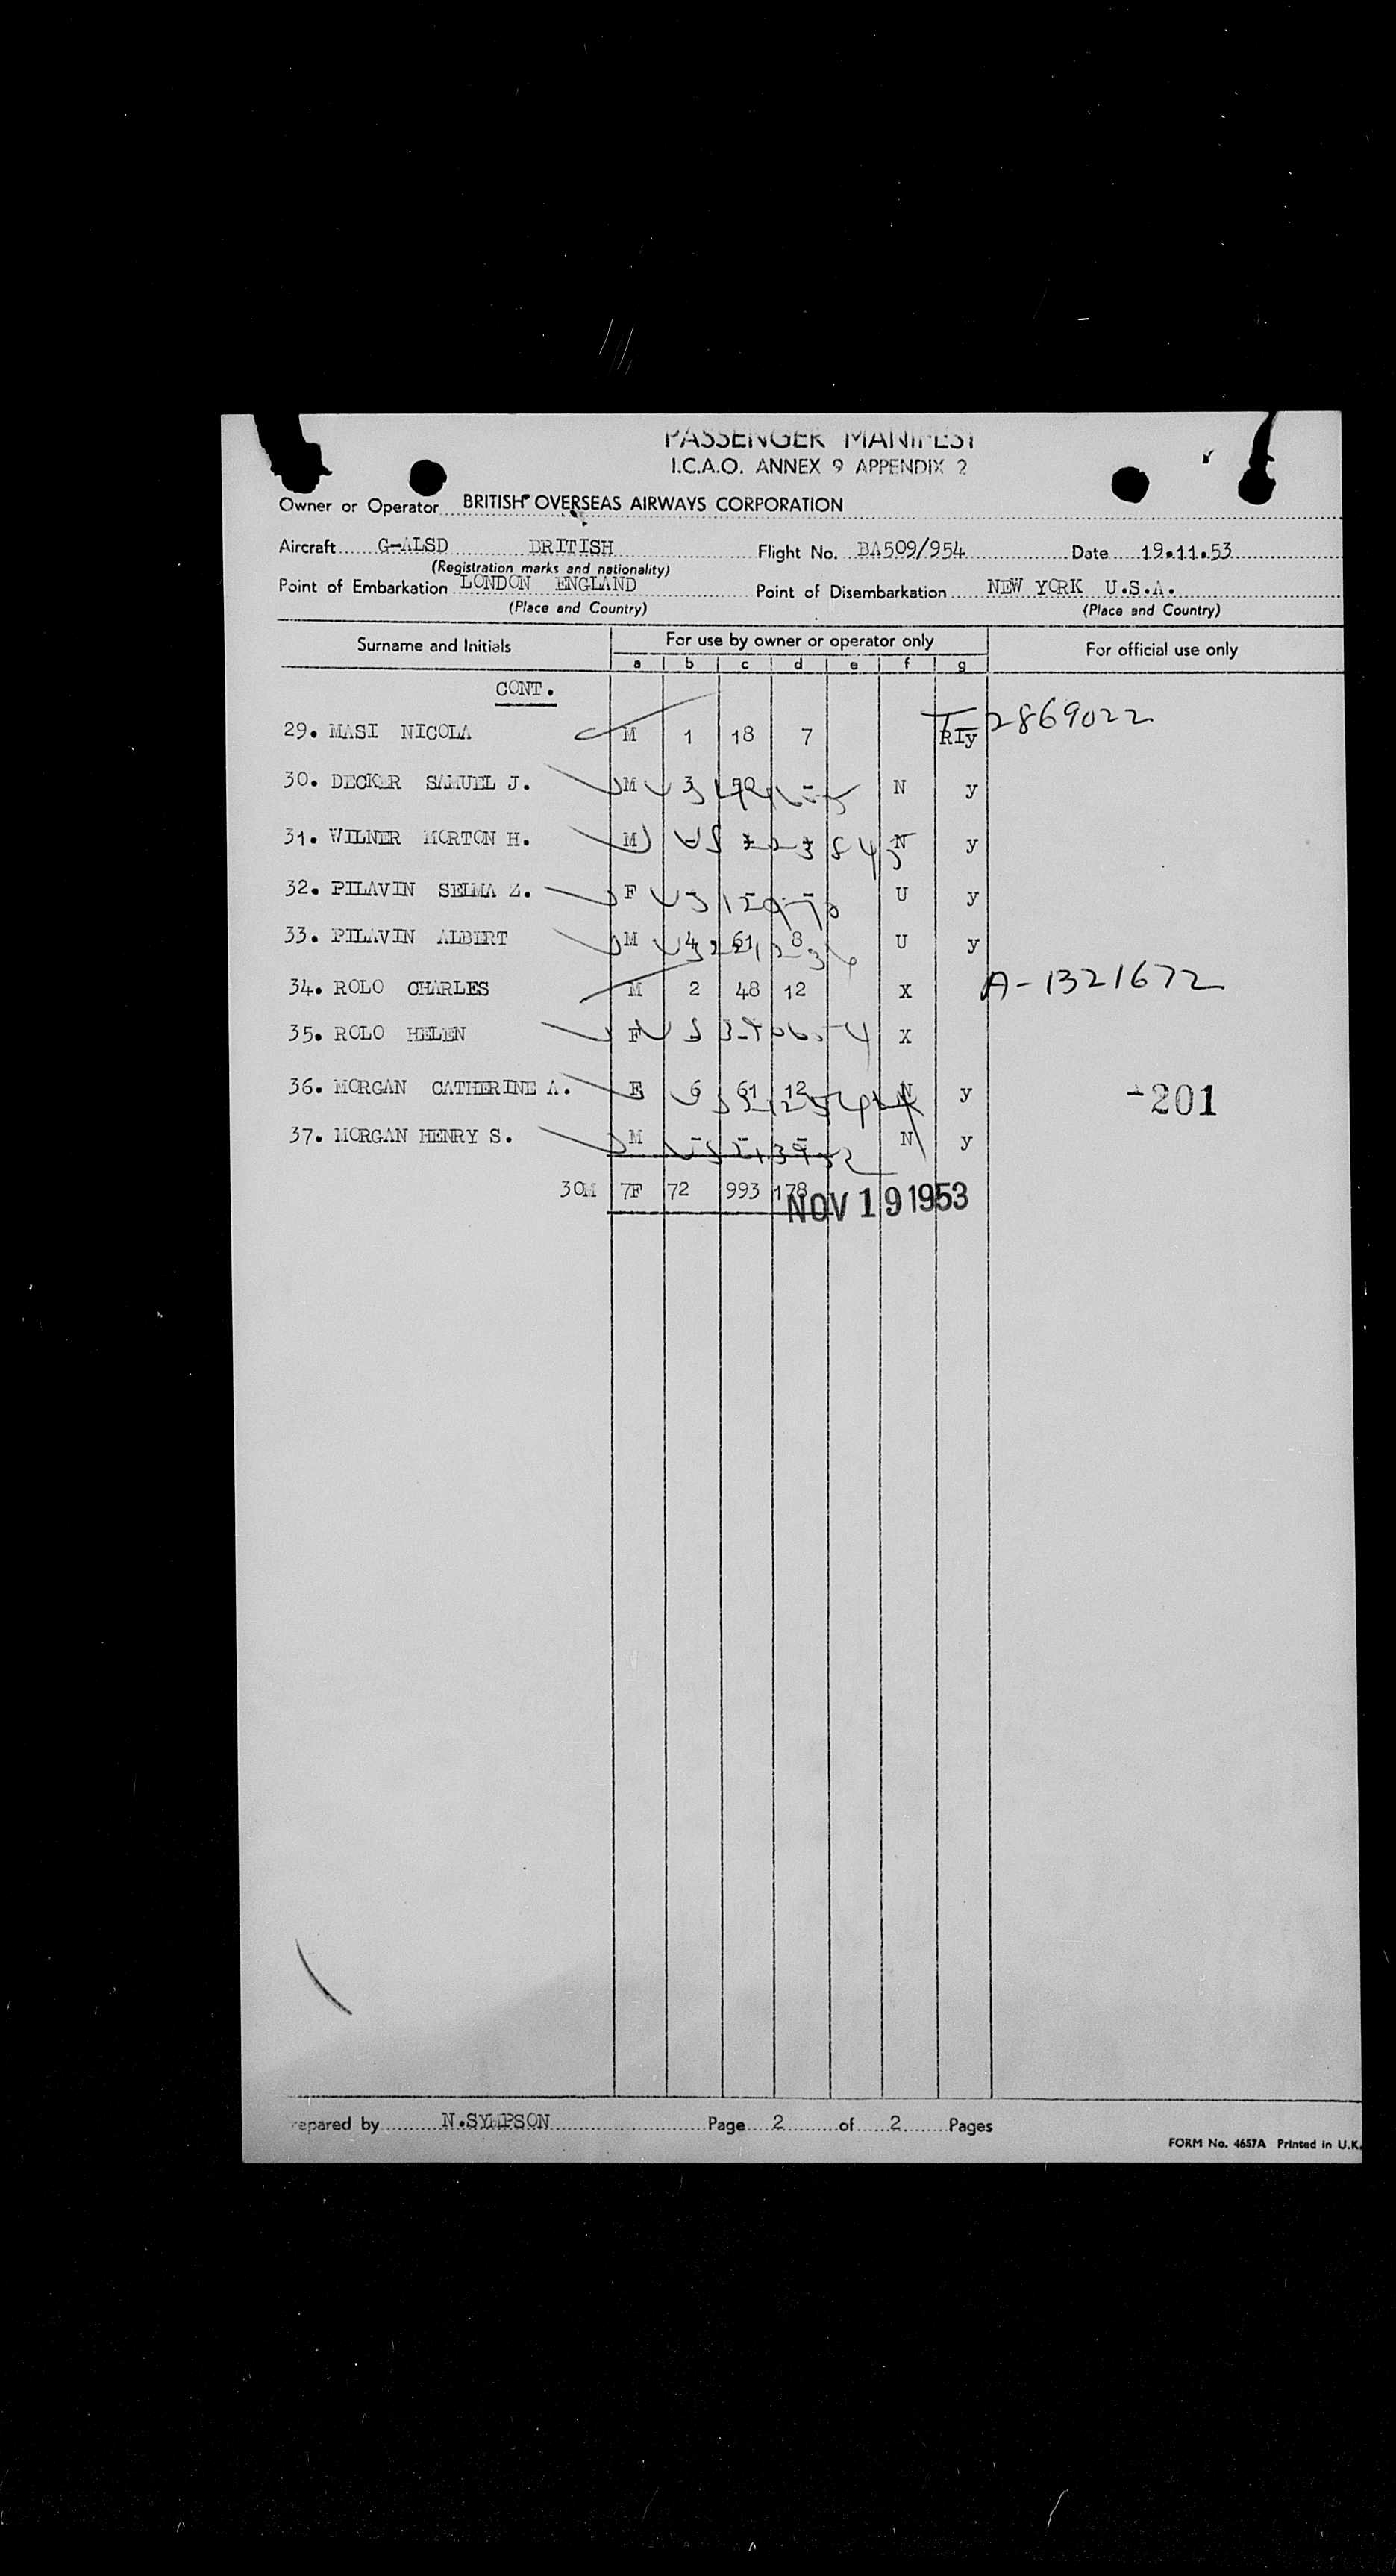 PASSENGER MANIFEST
I.C.A.O. ANNEX 9 APPENDIX 2
Owner or Operator BRITISH OVERSEAS AIRWAYS CORPORATION
Aircraft G-ALSD BRITISH Flight No. BA509/954 Date 19.11.53
(Registration marks and nationality)
Point of Embarkation LONDON ENGLAND Point of Disembarkation NEW YORK U.S.A.
(Place and Country) (Place and Country)
Surname and Initials For use by owner or operator only For official use only
a b c d e f g
CONT.
29. MASI NICOLA M 1 18 7 RIy T-2869022
30. DECKER SAMUEL J. M N y
31. WILNER MORTON H. M N y
32. PILAVIN SELMA Z. F U y
33. PILAVIN ALBERT M 4 61 8 U y
34. ROLO CHARLES M 2 48 12 X A-1321672
35. ROLO HELEN F X
36. MORGAN CATHERINE A. F 6 61 12 N y -201
37. MORGAN HENRY S. M - - - N y
30M 7F 72 993 178
NOV 19 1953
epared by N.SYMPSON Page 2 of 2 Pages
FORM No. 4657A Printed in U.K.